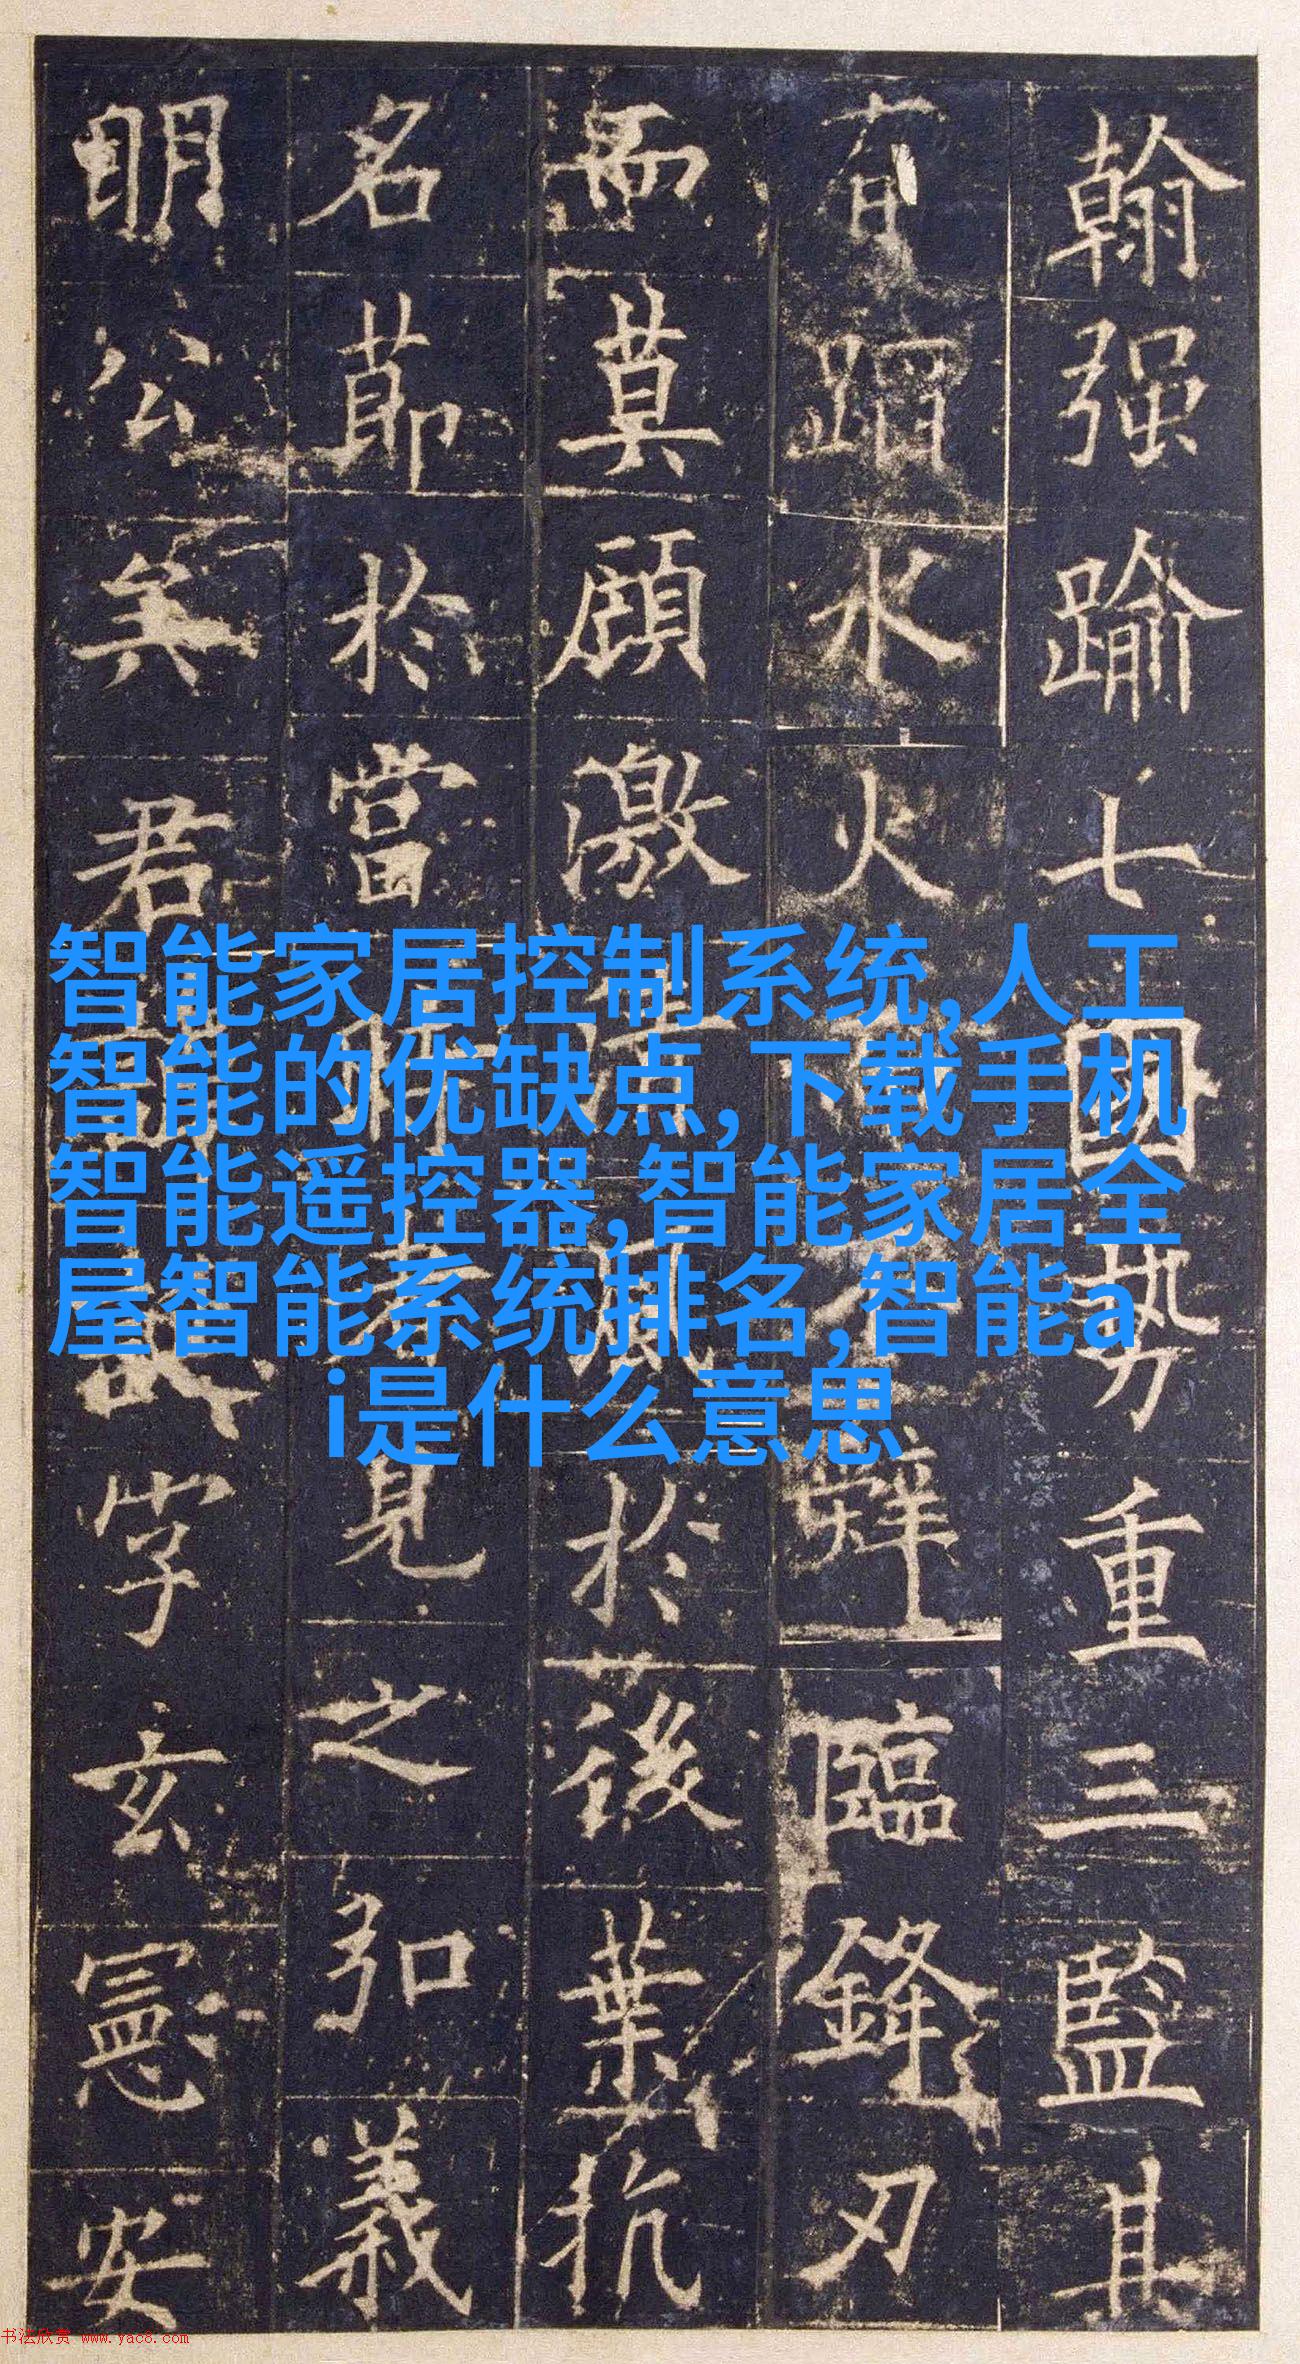 翰强踰七國勢重三監其
有蹈水火辭臨鋒刃
而莫顧激清風於後葉抗
名節於當時者見之弘義
明公矣君諱誕字玄憲安
智能家居控制系统,人工
智能的优缺点,下载手机
智能遥控器,智能家居全
屋智能系统排名,智能a
i是什么意思
书法欣赏 www.yac8.com